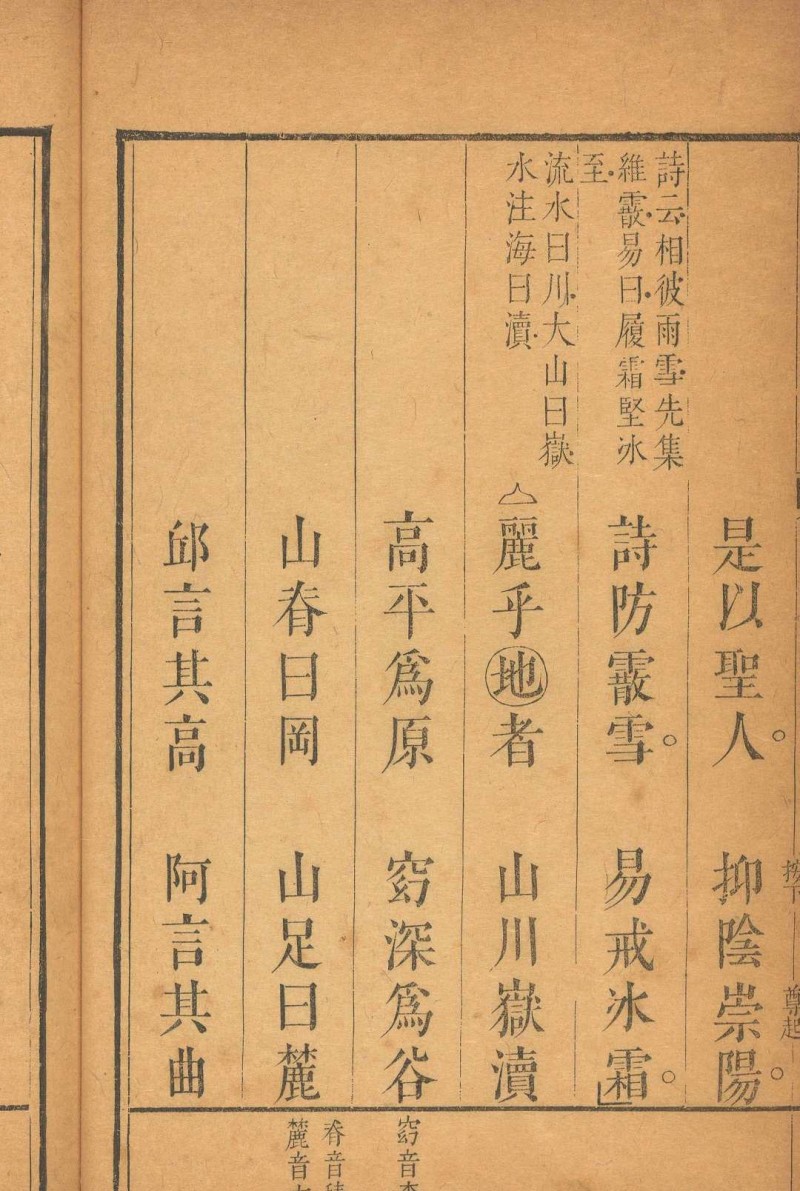 詩云相彼雨雪先集
維霰易曰履霜堅冰
至
流水曰川大山曰嶽
水注海曰瀆
按下 尊起
是以聖人。 抑陰崇陽。
詩防霰雪。 易戒冰霜。」
麗乎地者 山川嶽瀆
高平爲原 窈深爲谷
山脊曰岡 山足曰麓
邱言其高 阿言其曲
窈音
脊音
麓音